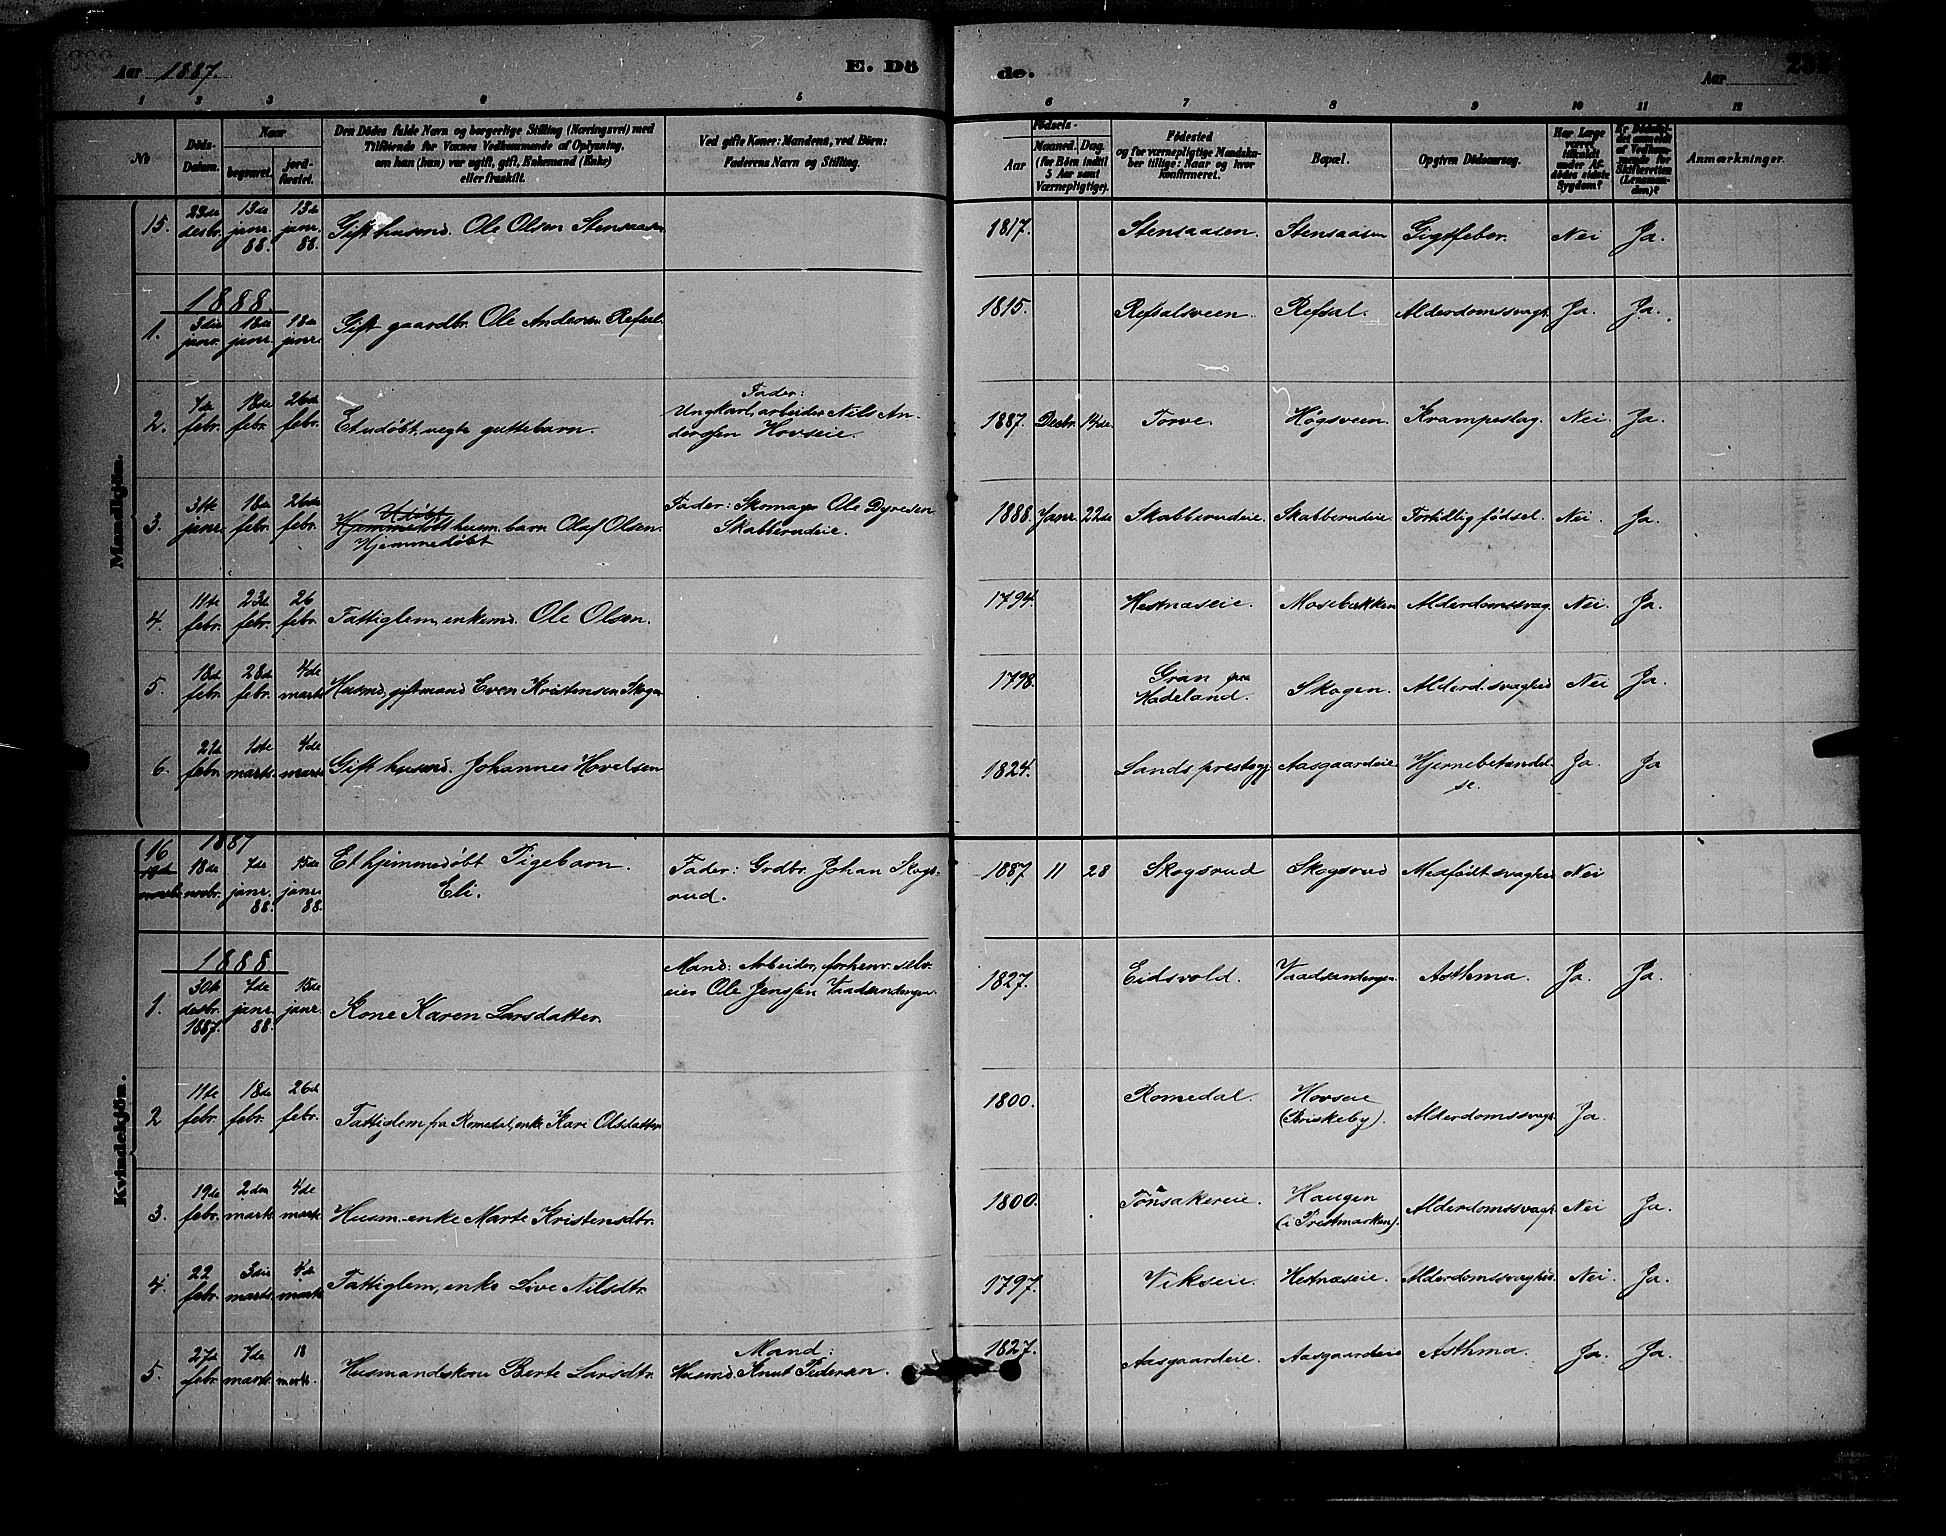 Aar 1887. E. Dö
de. Aar
1 2 3 4 5 6 7 8 9 10 11 12
No
Döds-
Datum.
Naar
begravet.
jord-
fæstet.
Den Dödes fulde Navn og borgerlige Stilling (Næringsvei) med
Tilföiende for Voxnes Vedkommende af Oplysning,
om han (hun) var ugift, gift, Enkemand (Enke)
eller fraskilt.
Ved gifte Koner: Mandens, ved Börn:
Faderens Navn og Stilling.
Födsels-
Aar
Maaned. Dag.
(for Börn indtil
5 Aar samt
Værnepligtige).
Födested
og for værnepligtige Mandska-
ber tillige: Naar og hvor
konfirmeret.
Bopæl.
Opgiven Dödsaarsag.
Har Læge
tilkaldt
under Af-
dödes sidste
Sygdom?
Er Dödsfal-
det anmeldt
af Vedkom-
mende for
Skifteretten
(Lensman-
den)?
Anmærkninger.
Mandkjön.
15. 23de desbr. 13de janr. 88. 13de janr. 88. Gift husmd. Ole Olsen Stensaasen 1817. Stensaasen. Stensaasen Gigtfeber. Nei Ja.
1888.
1. 3die janr. 18de janr. 18de janr. Gift gaardbr. Ole Andersen Refsal. 1815. Refsalsveen. Refsal. Alderdomssvagh. Ja. Ja.
2. 7de febr. 18de febr. 26de febr. Et udöbt, uegte guttebarn. Fader:
Ungkarl, arbeider Nils An-
derssen Hovseie. 1887. Desbr. 14de. Torve. Högsveen. Krampeslag. Nei. Ja.
3. 31te janr. 18de febr. 26de febr. Udöbt
Hjemmedöbt husm. barn Oluf Olsen.
Hjemmedöbt
Fader: Skomager Ole Dyresen
Skabberudeie. 1888. Janr. 22de Skabberudeie. Skabberudeie. Fortidlig födsel. Nei. Ja.
4. 11te febr. 23de febr. 26 febr. Fattiglem, enkemd. Ole Olsen. 1794. Hestnæseie. Mosebakken Alderdomssvag. Nei. Ja.
5. 18de febr. 28de febr. 4de marts Husmd, gift mand Even Kristensen Skogen 1798. Gran paa
Hadeland. Skogen. Alderd.svaghed Nei Ja.
6. 22de febr. 1ste marts. 4de marts Gift husmd. Johannes Hovelsen 1824. Sands prestegj. Aasgaardeie Hjernebetændel-
se. Ja. Ja
Kvindekjön.
1887
16 18de novbr. 7de janr. 88. 15de janr. 88. Et hjemmedöbt Pigebarn
Eli.
Fader: Grdbr. Johan Skogs-
rud. 1887 11 28 Skogsrud Skogsrud Medfödt svaghed Nei
1888
1. 30te desbr. 1887. 7de janr. 88. 15de janr. Kone Karen Larsdatter.
Mand: Arbeider, forhenv. selv-
eier Ole Jenssen Vaadeendengen. 1827. Eidsvold. Vaadeendengen. Asthma. Ja. Ja.
2 11te febr. 18de febr. 26de febr. Fattiglem fra Romedal, enke Kari Olsdatter 1800. Romedal. Hovseie
(Briskeby). Alderdomssvagh. Ja.
3. 19de febr. 2den marts. 4de marts Husm.-enke Marte Kristensdtr. 1800. Tönsakereie. Haugen
(i Prestmarken). Alderdomssvagh. Nei Ja.
4. 22 febr. 3die marts. 4de marts Fattiglem, enke Live Nilsdtr. 1797. Vikseie. Hestnæseie. Alderdomssvaghed. Nei. Ja.
5. 27de febr. 7de marts. 18 marts. Husmandskone Berte Larsdtr. Mand:
Husmd. Knut Pedersen. 1827. Aasgaardeie. Aasgaardeie Asthma. Ja. Ja.